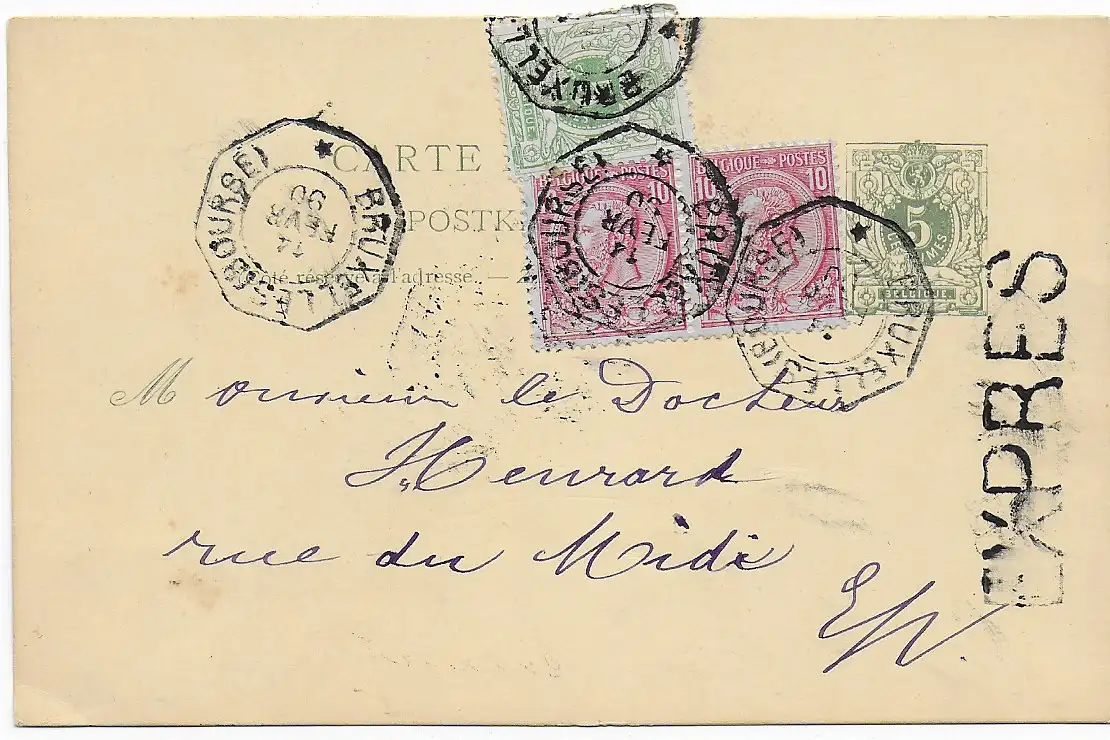 CARTE
POSTK
BRUXELLES (BOURSE)
14
FEVR
90
BRUXELL
BELGIQUE POSTES
10
BELGIQUE POSTES
10
BRUXELLES (BOURSE)
14
FEVR
90
BRUXELLES (BOURSE)
5
BELGIQUE
côté réservé à l'adresse. —
EXPRES
Monsieur le Docteur
Henrard
rue du Midi
E/V.